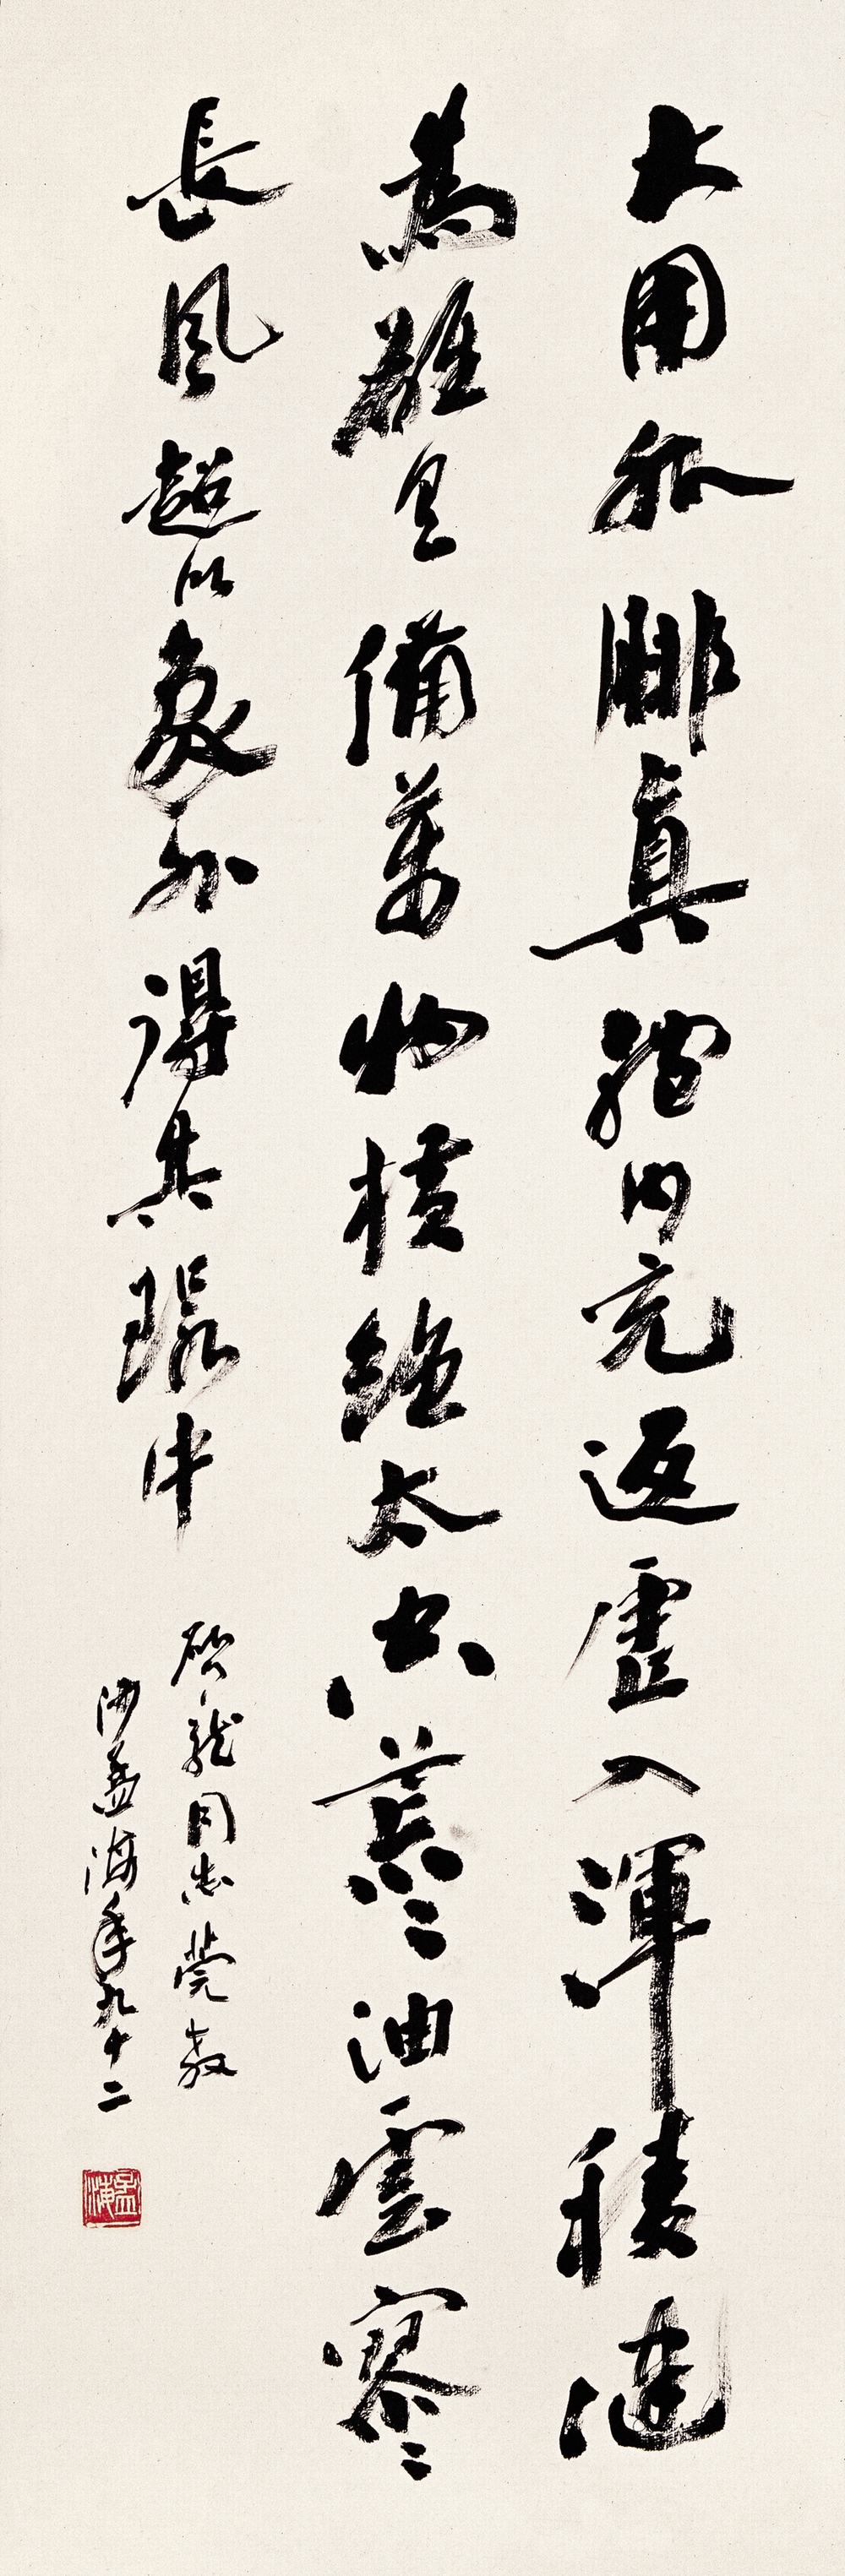 大用孤腓真體内充返虚入渾積健
為雄具備萬物橫絶太空荒〻油雲寥〻
長風超以象外得其環中
啓龍同志莞教
沙孟海年九十二
孟海